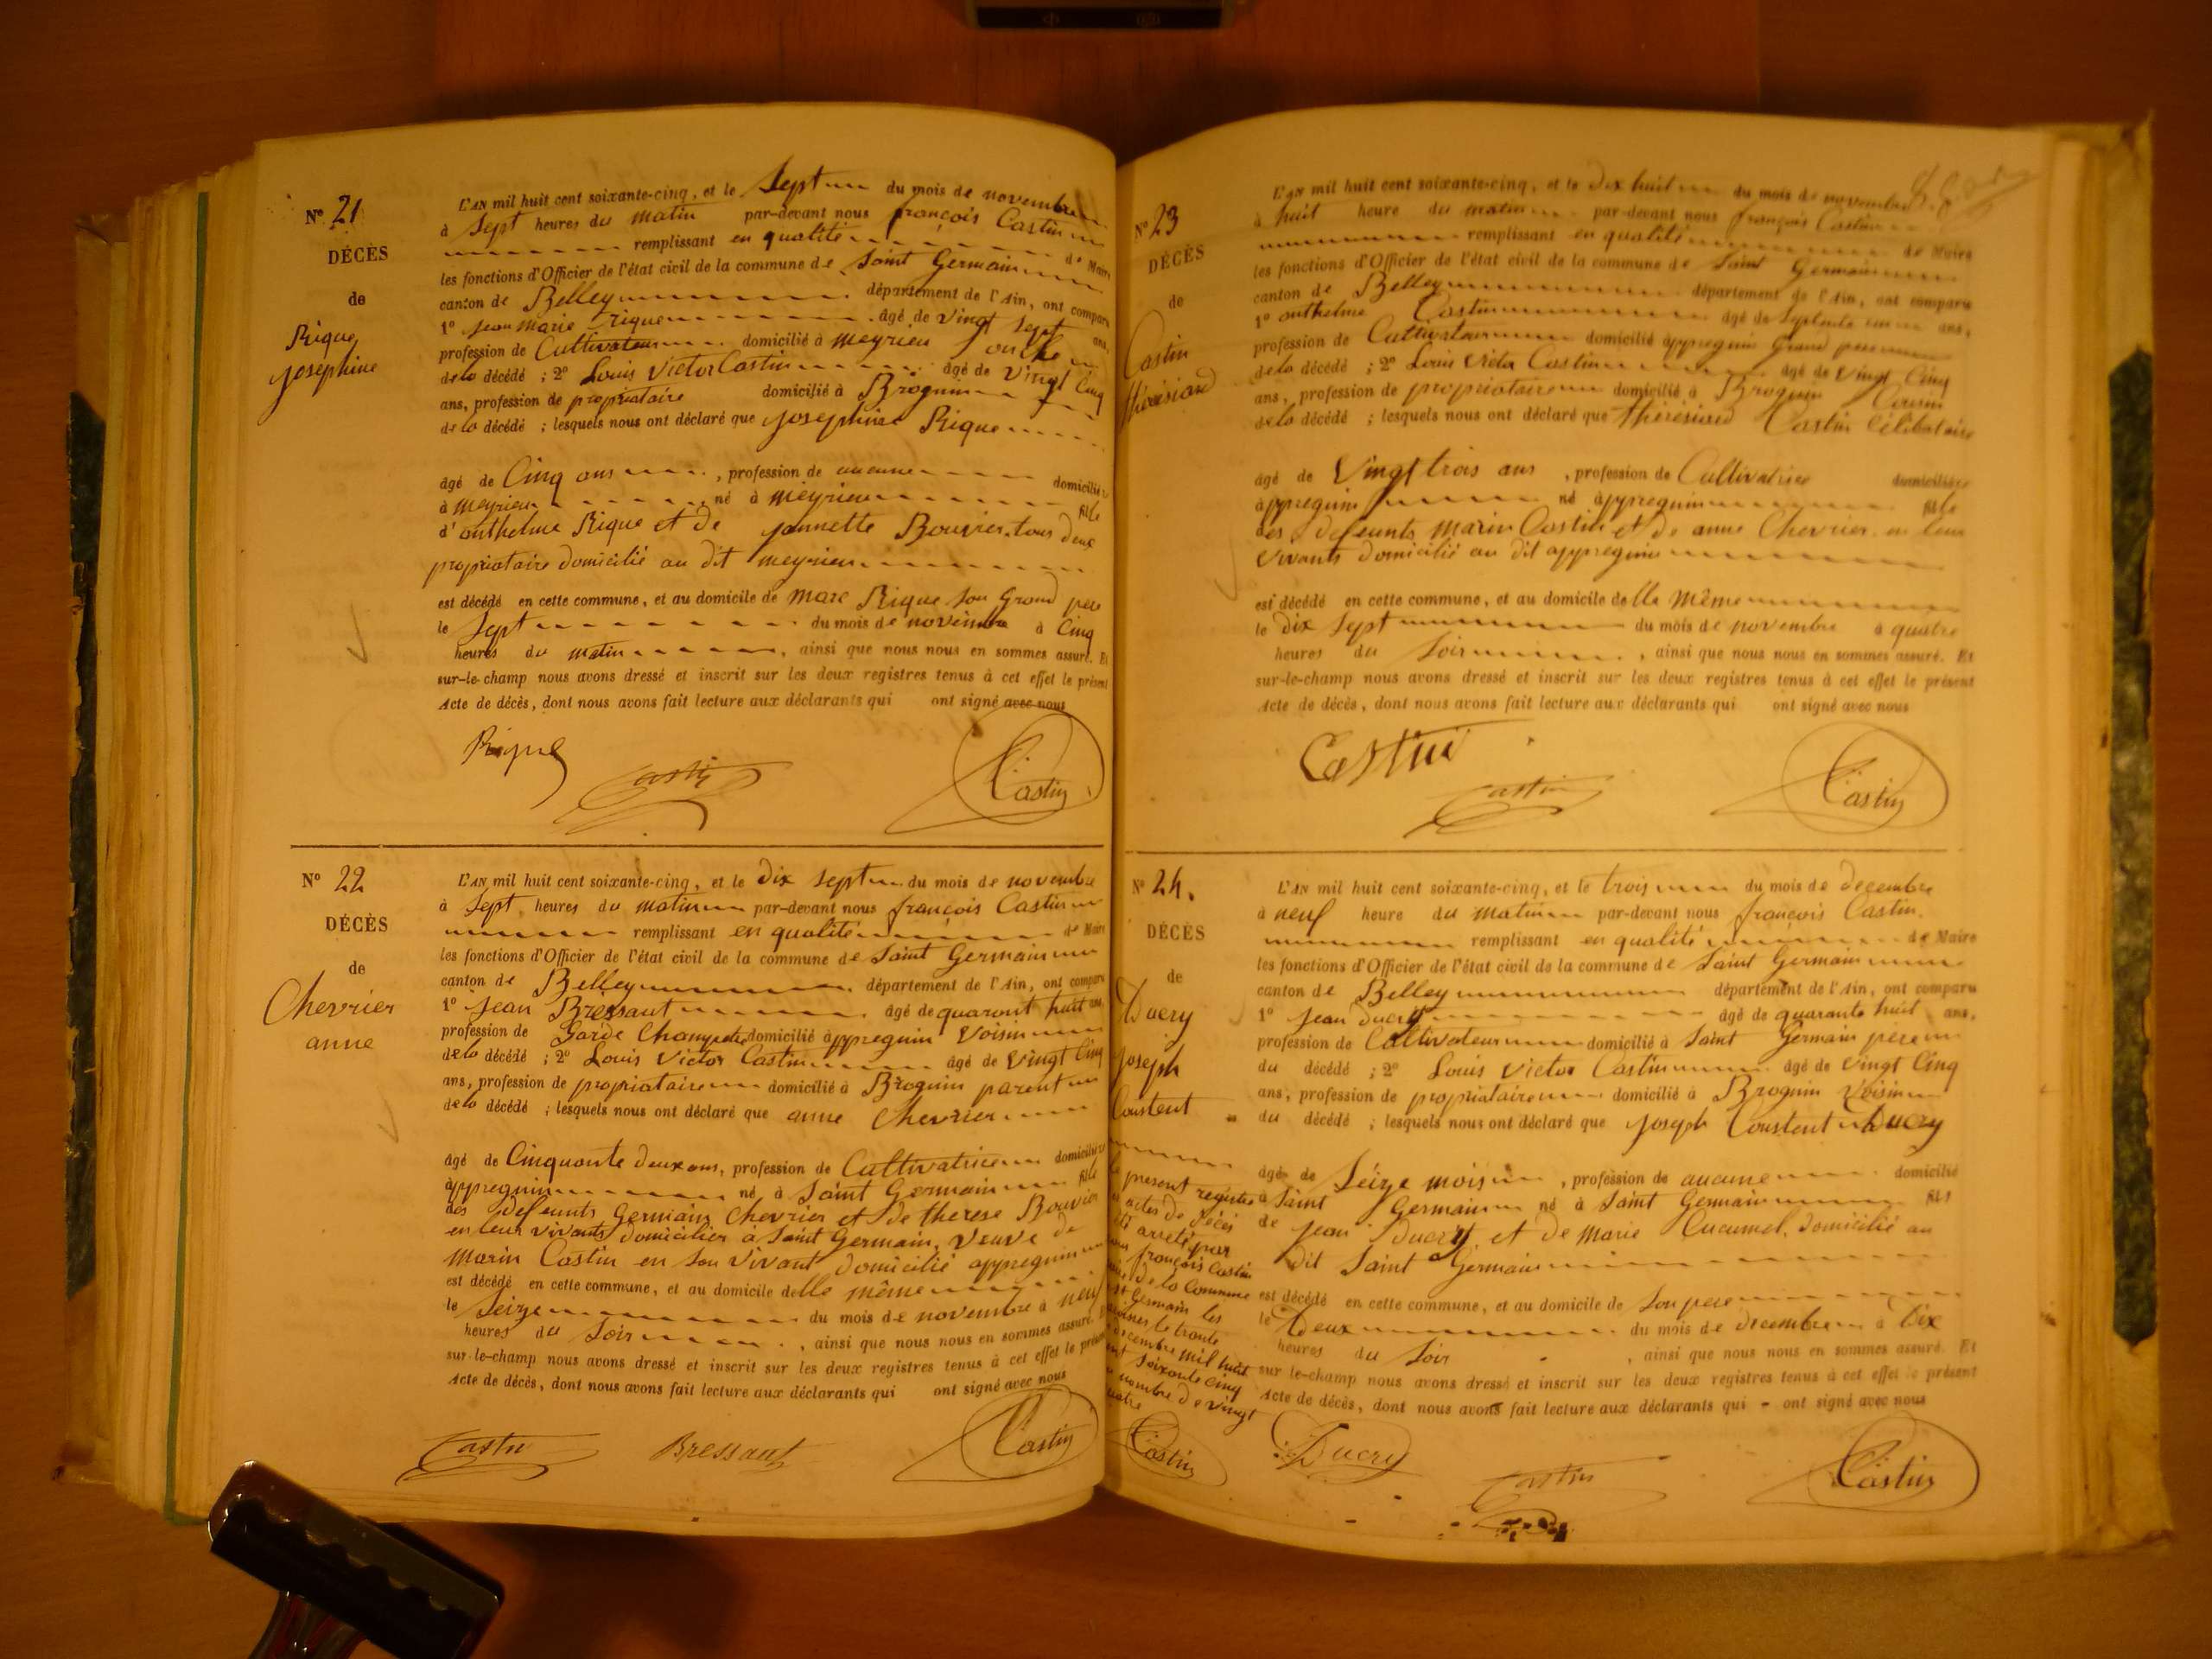 N° 21
DÉCÈS
de
Rique
Josephine
L'AN mil huit cent soixante-cinq, et le Sept du mois de novembre
à Sept heures du matin par-devant nous françois Castin
remplissant en qualité de Maire
les fonctions d'Officier de l'état civil de la commune de Saint Germain
canton de Belley département de l'Ain, ont comparu
1° Jean marie Rique âgé de vingt Sept ans,
profession de Cultivateur domicilié à meyrieu oncle
de la décédé ; 2° Louis Victor Castin âgé de Vingt Cinq
ans, profession de propriataire domicilié à Brognin
de la décédé ; lesquels nous ont déclaré que Josephine Rique
âgé de Cinq ans , profession de aucune domiciliée
à meyrieu né à meyrieu fille
d'onthelme Rique et de Jannette Bouvier tous deux
propriataire domicilié au dit meyrieu
est décédé en cette commune, et au domicile de marc Rique Son Grand père
le Sept du mois de novembre à Cinq
heures du matin , ainsi que nous nous en sommes assuré. Et
sur-le-champ nous avons dressé et inscrit sur les deux registres tenus à cet effet le présent
Acte de décès, dont nous avons fait lecture aux déclarants qui ont signé avec nous
Rique
Castin
Castin
N° 22
DÉCÈS
de
Chevrier
anne
L'AN mil huit cent soixante-cinq, et le Dix Sept du mois de novembre
à Sept heures du matin par-devant nous françois Castin
remplissant en qualité de Maire
les fonctions d'Officier de l'état civil de la commune de Saint Germain
canton de Belley département de l'Ain, ont comparu
1° Jean Bressaut âgé de quarant huit ans,
profession de Garde Champetre domicilié àppregnin Voisin
de la décédé ; 2° Louis Victor Castin âgé de Vingt Cinq
ans, profession de propriataire domicilié à Brognin parent
de la décédé ; lesquels nous ont déclaré que anne Chevrier
âgé de Cinquante deux ans, profession de Cultivatrice domiciliée
àppregnin né à Saint Germain fille
des defeunts Germain Chevrier et de therese Bouvier
en leur vivants domicilier à Saint Germain, Veuve de
Marin Castin en Son Vivant domicilié appregnin
est décédé en cette commune, et au domicile delle même
le Seize du mois de novembre à neuf
heures du Soir , ainsi que nous nous en sommes assuré. Et
sur-le-champ nous avons dressé et inscrit sur les deux registres tenus à cet effet le présent
Acte de décès, dont nous avons fait lecture aux déclarants qui ont signé avec nous
Castin Bressaut Castin
N° 23
DÉCÈS
de
Castin
thérésine
L'AN mil huit cent soixante-cinq, et le Dix huit du mois de novembre
à huit heure du matin par-devant nous françois Castin
remplissant en qualité de Maire
les fonctions d'Officier de l'état civil de la commune de Saint Germain
canton de Belley département de l'Ain, ont comparu
1° onthelme Castin âgé de Septente ans,
profession de Cultivateur domicilié àppregnin Grand pere
de la décédé ; 2° Louis Victor Castin âgé de Vingt Cinq
ans, profession de propriataire domicilié à Brognin Cousin
de la décédé ; lesquels nous ont déclaré que thérésine Castin Célibataire
âgé de Vingt trois ans , profession de Cultivatrice domiciliée
àppregnin né àppregnin fille
des defeunts marin Castin et de anne Chevrier en leur
Vivants domicilié au dit appregnin
est décédé en cette commune, et au domicile delle même
le Dix Sept du mois de novembre à quatre
heures du Soir , ainsi que nous nous en sommes assuré. Et
sur-le-champ nous avons dressé et inscrit sur les deux registres tenus à cet effet le présent
Acte de décès, dont nous avons fait lecture aux déclarants qui ont signé avec nous
Castin
Castin
Castin
N° 24.
DÉCÈS
de
Ducry
Joseph
Constent
L'AN mil huit cent soixante-cinq, et le trois du mois de decembre
à neuf heure du matin par-devant nous françois Castin
remplissant en qualité de Maire
les fonctions d'Officier de l'état civil de la commune de Saint Germain
canton de Belley département de l'Ain, ont comparu
1° Jean Ducry âgé de quarante huit ans,
profession de Cultivateur domicilié à Saint Germain père
du décédé ; 2° Louis Victor Castin âgé de Vingt Cinq
ans, profession de propriataire domicilié à Brognin Voisin
du décédé ; lesquels nous ont déclaré que Joseph Constent Ducry
âgé de Seize mois , profession de aucune domicilié
à Saint Germain né à Saint Germain fils
de Jean Ducry et de Marie Cucumel, domicilié au
dit Saint Germain
est décédé en cette commune, et au domicile de Son pere
le Deux du mois de decembre à Dix
heures du Soir , ainsi que nous nous en sommes assuré. Et
sur le-champ nous avons dressé et inscrit sur les deux registres tenus à cet effet le présent
Acte de décès, dont nous avons fait lecture aux déclarants qui ont signé avec nous
present registre
actes de décès
été arrêté par
françois Castin
de la Commune
St Germain les
le trente
decembre mil huit
Soixante cinq
nombre de vingt
quatre
Castin Ducry
Castin
Castin